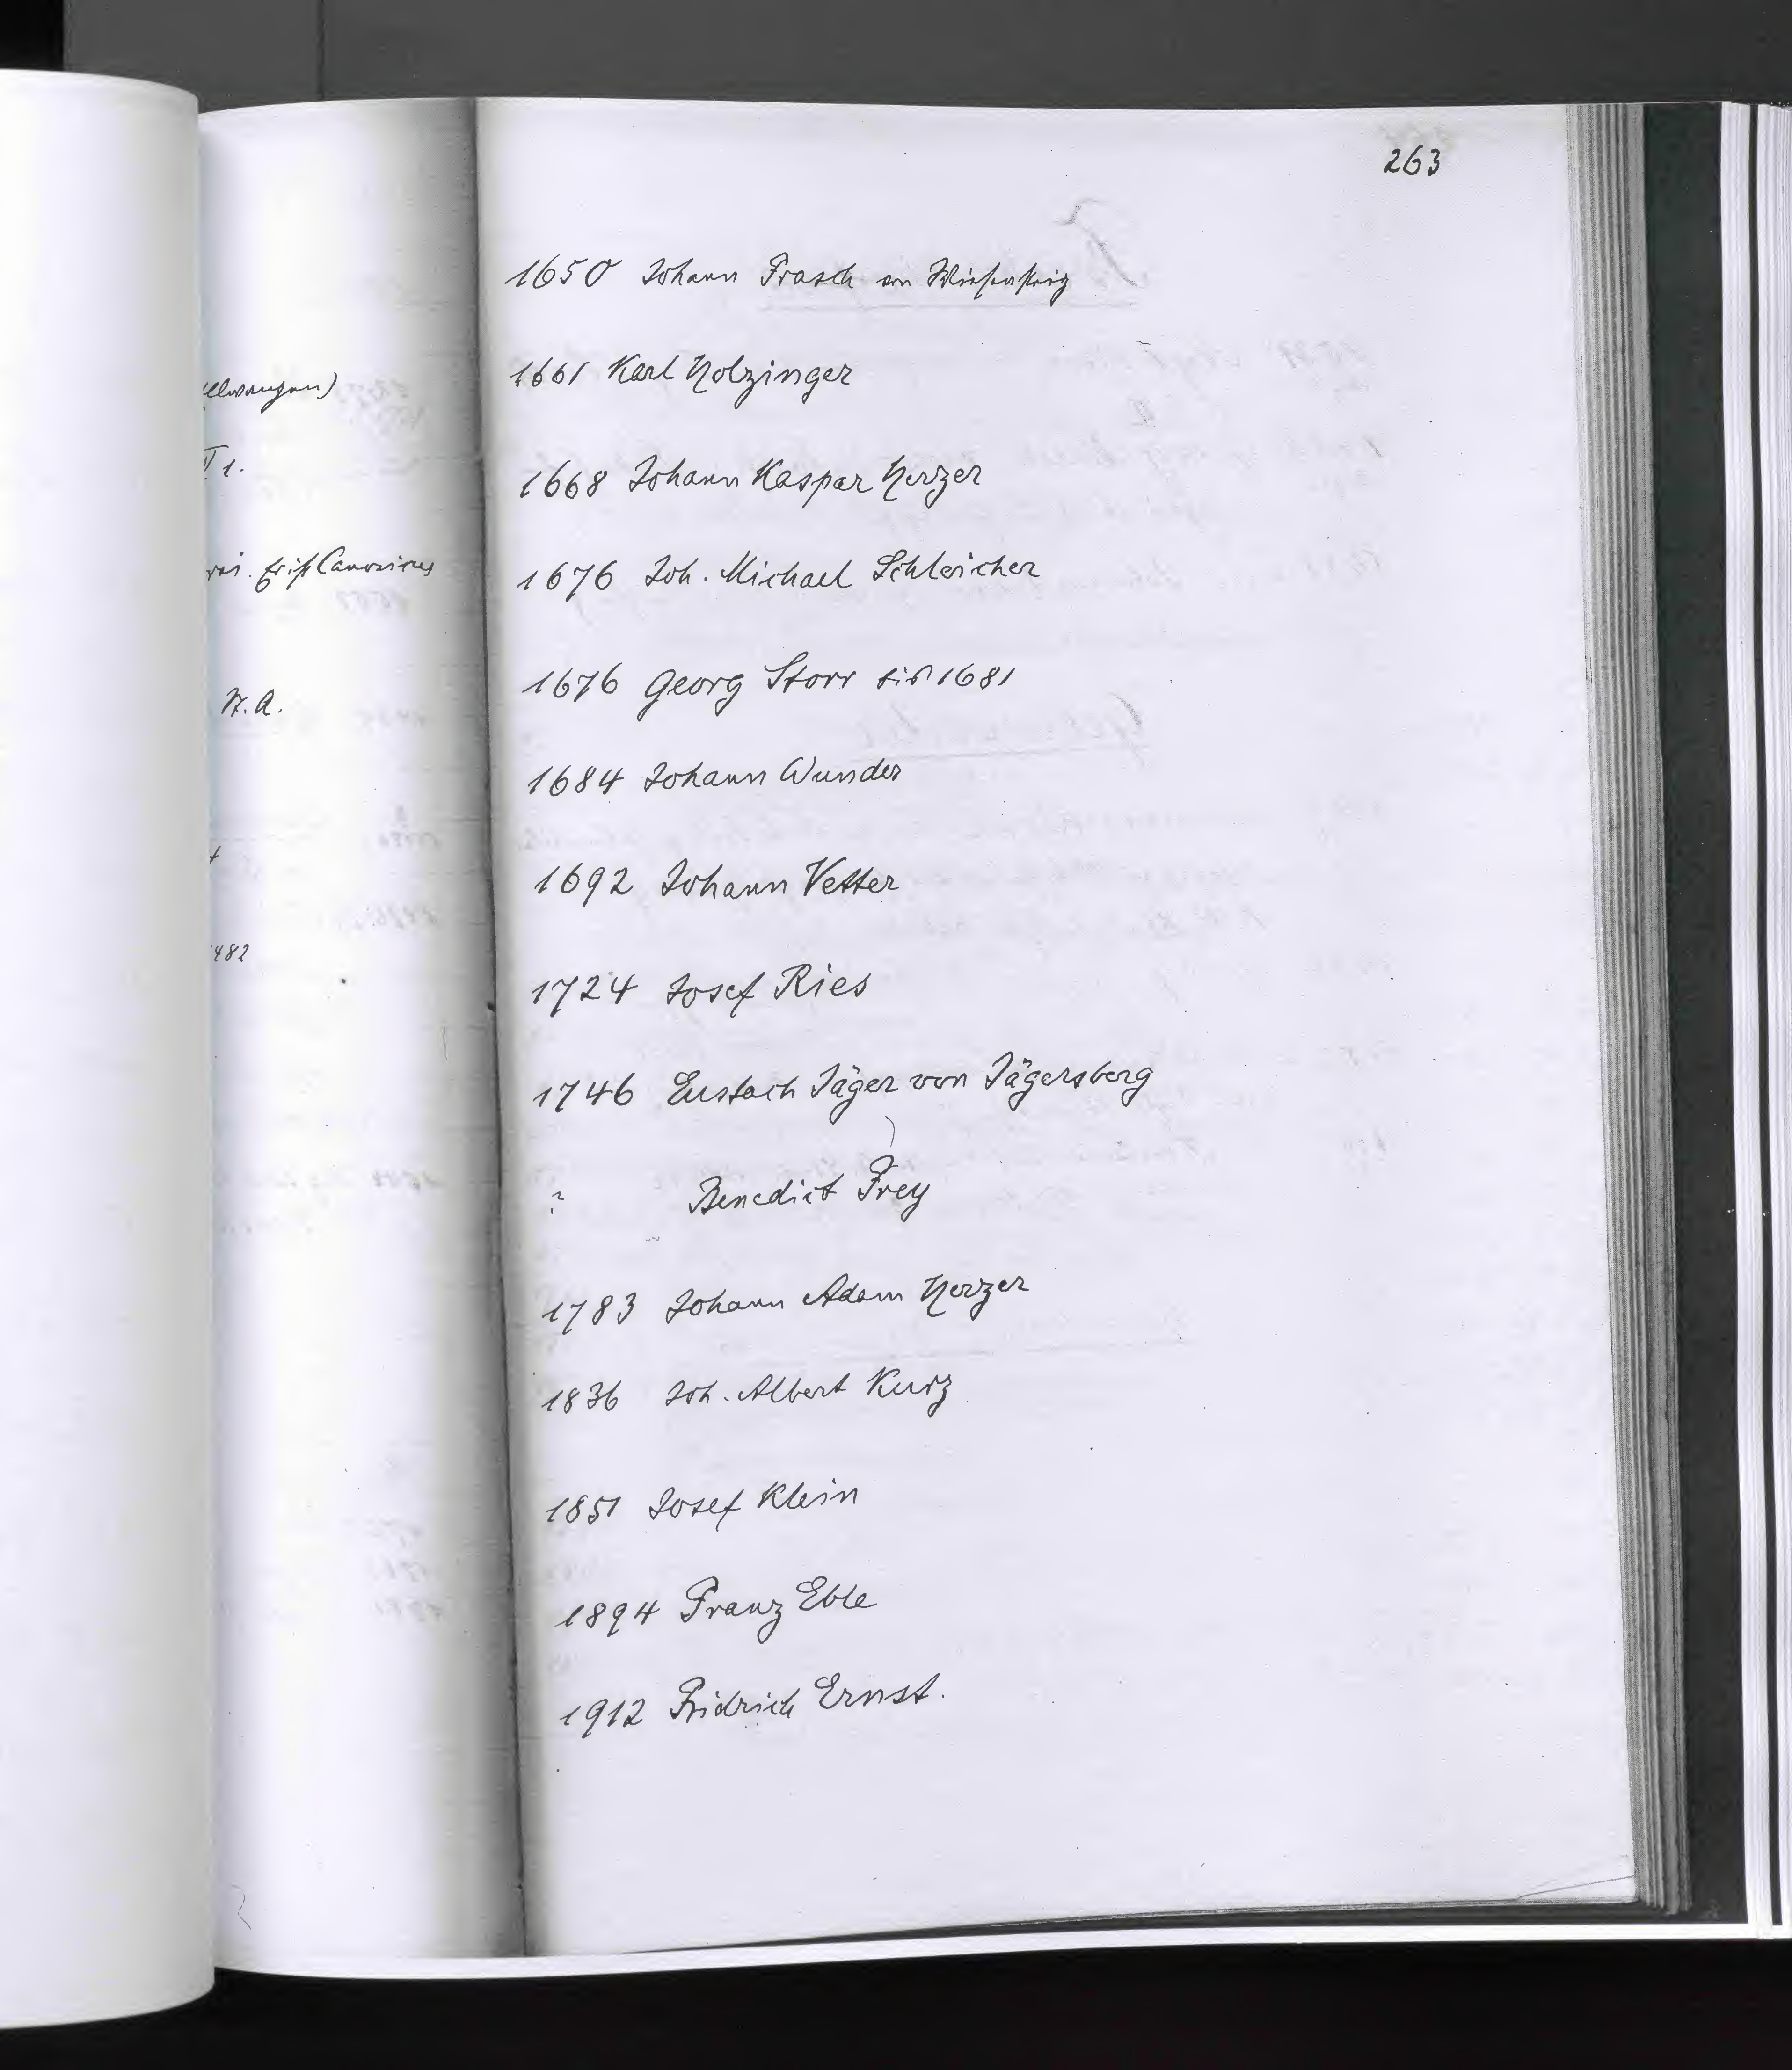 263
1650 Johann Frasch von Wiesensteig
1661 Karl Holzinger
1668 Johann Kaspar Herzer
1676 Joh. Michael Schleicher
1676 Georg Storr bis 1681
1684 Johann Wunder
1692 Johann Vetter
1724 Josef Ries
1746 Eustach Jäger von Jägersberg
? Benedict Frey
1783 Johann Adam Herzer
1836 Joh. Albert Kurz
1851 Josef Klein
1894 Franz Eble
1912 Fridrich Ernst.
llwangen)
1.
Canonicus
N.A.
482